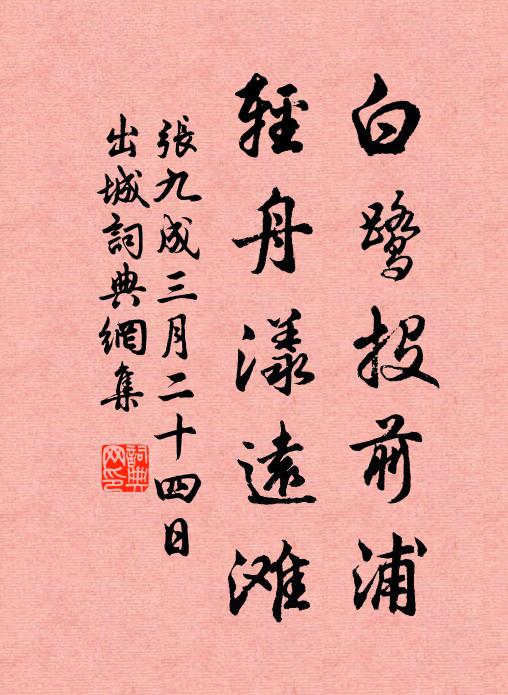 白鹭投前浦
輕舟漾遠滩
張九成三月二十四日
出城詞典網集
詞典
网印